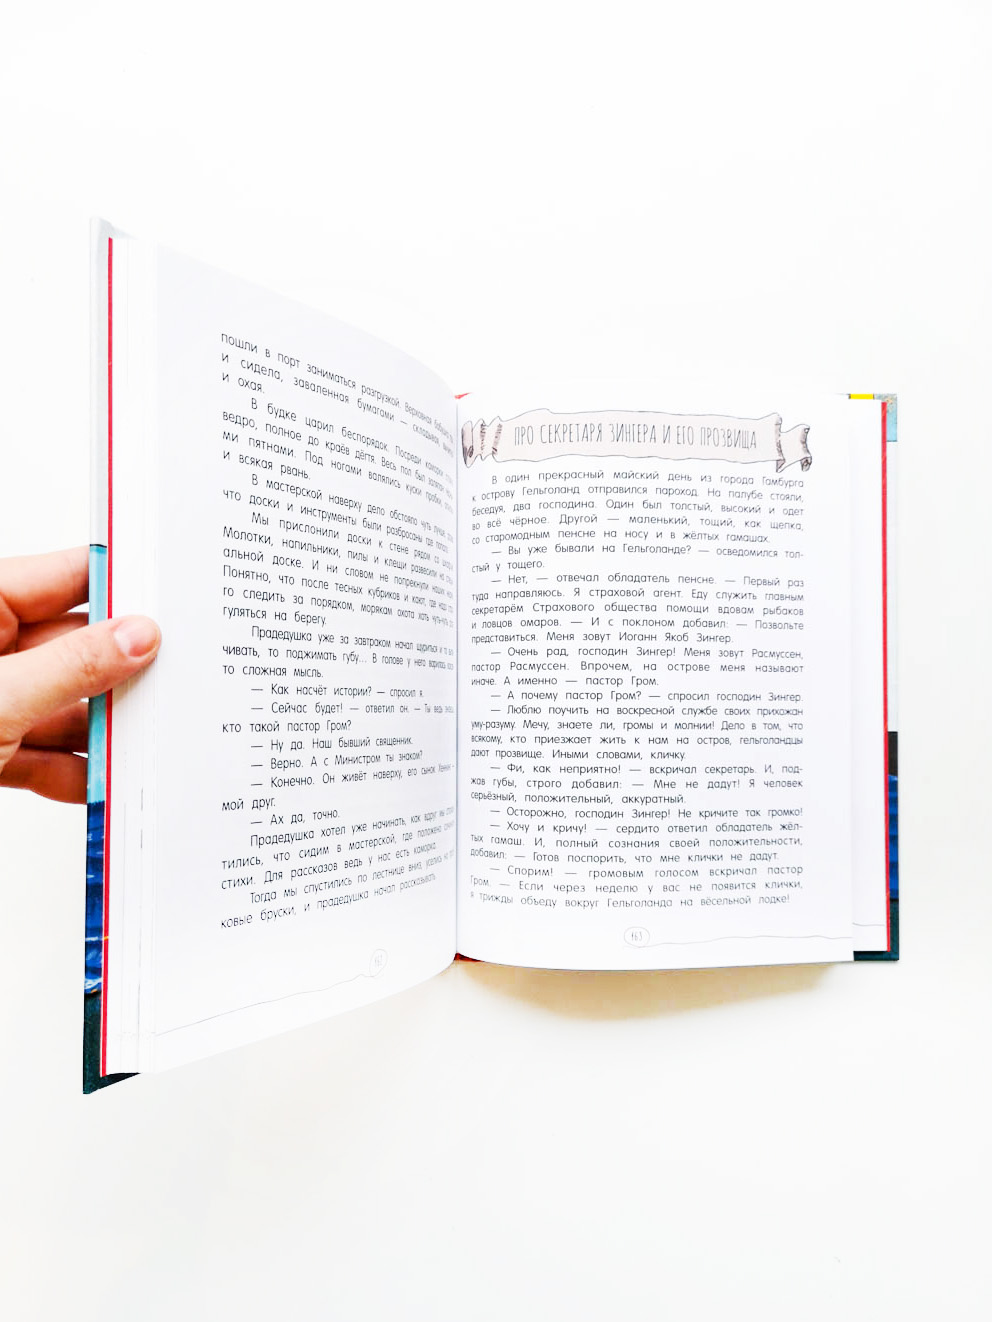 пошли в порт заниматься разгрузкой. Верховная бабушка
и сидела, заваленная бумагами — складывая,
и охая.
В будке царил беспорядок. Посреди каморки
ведро, полное до краёв дёгтя. Весь пол был
ми пятнами. Под ногами валялись куски пробки,
и всякая рвань.
В мастерской наверху дело обстояло чуть лучше,
что доски и инструменты были разбросаны где попало.
Мы прислонили доски к стене рядом со
Молотки, напильники, пилы и клещи развесили на
альной доске. И ни словом не попрекнули наших
Понятно, что после тесных кубриков и кают, где надо
го следить за порядком, морякам охота хоть чуть-чуть
гуляться на берегу.
Прадедушка уже за завтраком начал щуриться и то
чивать, то поджимать губу... В голове у него варилась
то сложная мысль.
— Как насчёт истории? — спросил я.
— Сейчас будет! — ответил он. — Ты ведь
кто такой пастор Гром?
— Ну да. Наш бывший священник.
— Верно. А с Министром ты знаком?
— Конечно. Он живёт наверху, его сынок Хеннинг –
мой друг.
— Ах да, точно.
Прадедушка хотел уже начинать, как вдруг мы
тились, что сидим в мастерской, где положено
стихи. Для рассказов ведь у нас есть каморка.
Тогда мы спустились по лестнице вниз, уселись на
ковые бруски, и прадедушка начал рассказывать
ПРО СЕКРЕТАРЯ ЗИНГЕРА И ЕГО ПРОЗВИЩА
В один прекрасный майский день из города Гамбурга
к острову Гельголанд отправился пароход. На палубе стояли,
беседуя, два господина. Один был толстый, высокий и одет
во всё чёрное. Другой — маленький, тощий, как щепка,
со старомодным пенсне на носу и в жёлтых гамашах.
— Вы уже бывали на Гельголанде? — осведомился тол-
стый у тощего.
— Нет, — отвечал обладатель пенсне. — Первый раз
туда направляюсь. Я страховой агент. Еду служить главным
секретарём Страхового общества помощи вдовам рыбаков
и ловцов омаров. — И с поклоном добавил: — Позвольте
представиться. Меня зовут Иоганн Якоб Зингер.
— Очень рад, господин Зингер! Меня зовут Расмуссен,
пастор Расмуссен. Впрочем, на острове меня называют
иначе. А именно — пастор Гром.
— А почему пастор Гром? — спросил господин Зингер.
— Люблю поучить на воскресной службе своих прихожан
уму-разуму. Мечу, знаете ли, громы и молнии! Дело в том, что
всякому, кто приезжает жить к нам на остров, гельголандцы
дают прозвище. Иными словами, кличку.
— Фи, как неприятно! — вскричал секретарь. И, под-
жав губы, строго добавил: — Мне не дадут! Я человек
серьёзный, положительный, аккуратный.
— Осторожно, господин Зингер! Не кричите так громко!
— Хочу и кричу! — сердито ответил обладатель жёл-
тых гамаш. И, полный сознания своей положительности,
добавил: — Готов поспорить, что мне клички не дадут.
— Спорим! — громовым голосом вскричал пастор
Гром. — Если через неделю у вас не появится клички,
я трижды объеду вокруг Гельголанда на вёсельной лодке!
163